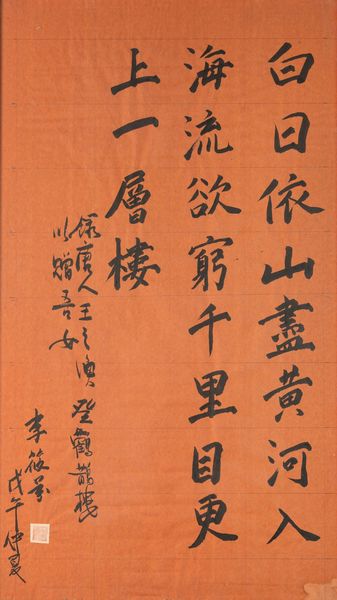 白日依山盡黄河入
海流欲窮千里目更
上一層樓
錄唐人王之渙登鸛鵲樓
以贈吾女
李筱
戊午仲夏